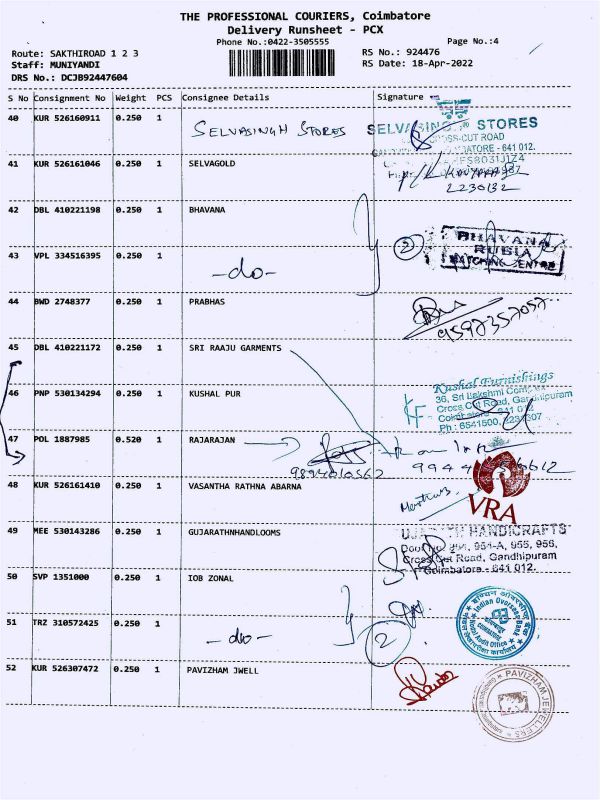 THE PROFESSIONAL COURIERS, Coimbatore
Delivery Runsheet - PCX
Phone No.:0422-3505555 Page No.:4
Route: SAKTHIROAD 1 2 3 RS No.: 924476
Staff: MUNIYANDI RS Date: 18-Apr-2022
DRS No.: DCJB92447604
S No Consignment No Weight PCS Consignee Details Signature
40 KUR 526160911 0.250 1 SELVASINGH STORES
SELVASINGH STORES
CROSS-CUT ROAD
COIMBATORE - 641 012.
41 KUR 526161046 0.250 1 SELVAGOLD
2230132
42 DBL 410221198 0.250 1 BHAVANA
2
BHAVANA
RUBIA
MATCHING CENTRE
43 VPL 334516395 0.250 1 -do-
44 BWD 2748377 0.250 1 PRABHAS
9597357057
45 DBL 410221172 0.250 1 SRI RAAJU GARMENTS
46 PNP 530134294 0.250 1 KUSHAL PUR
Kushal Furnishings
KF 36, Sri Lakshmi Complex
Cross Cut Road, Gandhipuram
Coimbatore - 641 012
Ph : 6541500,
47 POL 1887985 0.520 1 RAJARAJAN
48 KUR 526161410 0.250 1 VASANTHA RATHNA ABARNA
VRA
49 MEE 530143286 0.250 1 GUJARATHNHANDLOOMS
UJARATH HANDICRAFTS
Door No. 951, 951-A, 955, 956,
Cross Cut Road, Gandhipuram
Coimbatore - 641 012.
50 SVP 1351000 0.250 1 IOB ZONAL
Indian Overseas Bank
Zonal Audit Office
51 TRZ 310572425 0.250 1 -do-
2
52 KUR 526307472 0.250 1 PAVIZHAM JWELL
PAVIZHAM JEWELLERS